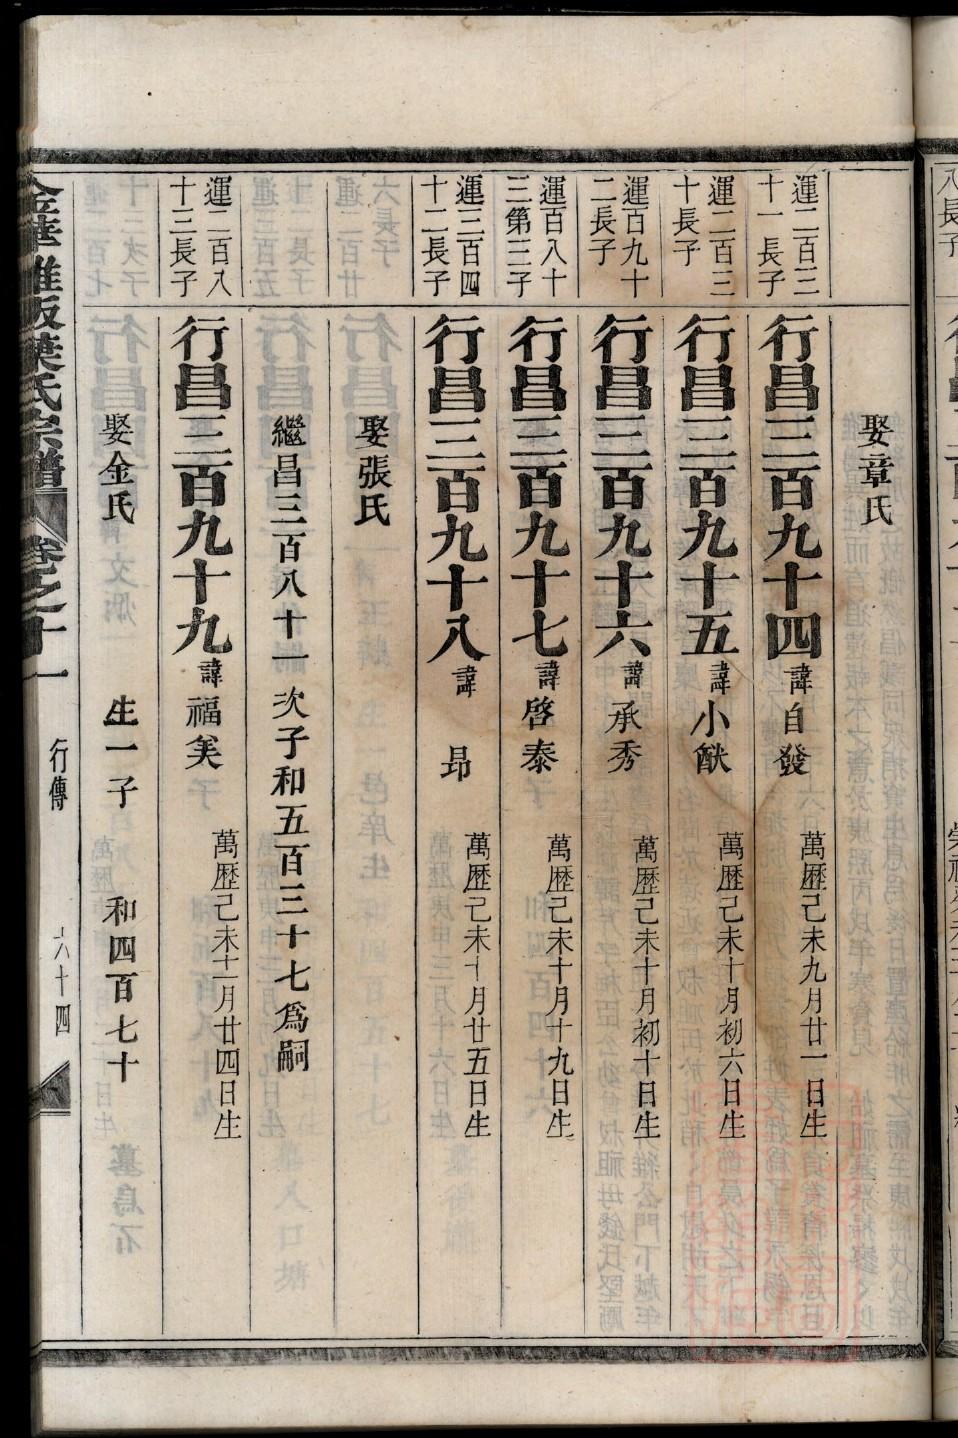 娶章氏
運二百三
十一長子
行昌三百九十四
諱自發
萬歷己未九月廿一日生
運二百三
十長子
行昌三百九十五
諱小猷
萬歷己未十月初六日生
運百九十
二長子
行昌三百九十六
諱承秀
萬歷己未十月初十日生
運百八十
三第三子
行昌三百九十七
諱啓泰
萬歷己未十月十九日生
運三百四
十二長子
行昌三百九十八
諱昂
萬歷己未十月廿五日生
娶張氏
繼昌三百八十一次子和五百三十七為嗣
運二百八
十三長子
行昌三百九十九
諱福
萬歷己未十二月廿四日生
娶金氏 生一子 和四百七十
葉氏宗譜 卷之十一 行傳 六十四